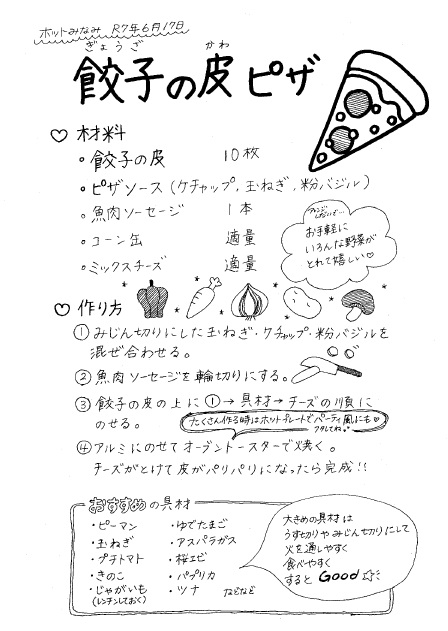 ホットみなみ R7年6月17日
ぎょうざ かわ
餃子の皮ピザ
♡ 材料
・餃子の皮 10枚
・ピザソース(ケチャップ,玉ねぎ,粉バジル)
・魚肉ソーセージ 1本
・コーン缶 適量
・ミックスチーズ 適量
お手軽に
いろんな野菜が
とれて嬉しい♡
♡ 作り方
①みじん切りにした玉ねぎ・ケチャップ・粉バジルを
混ぜ合わせる。
②魚肉ソーセージを輪切りにする。
③餃子の皮の上に①→具材→チーズの順に
のせる。
たくさん作る時はホットプレートでパーティ風にも♡
④アルミにのせてオーブントースターで焼く。
チーズがとけて皮がパリパリになったら完成!!
おすすめの具材
・ピーマン ・ゆでたまご
・玉ねぎ ・アスパラガス
・プチトマト ・桜エビ
・きのこ ・パプリカ
・じゃがいも ・ツナ などなど
(レンチンしておく)
大きめの具材は
うす切りやみじん切りにして
火を通しやすく
食べやすく
すると Good☆